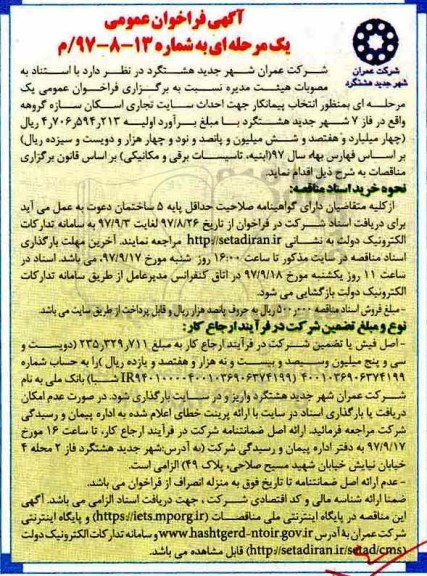 آگهی فراخوان عمومی
یک مرحله ای به شماره ۱۳-۸-۹۷/م
شرکت عمران
شهر جدید هشتگرد
شرکت عمران شهر جدید هشتگرد در نظر دارد با استناد به
مصوبات هیئت مدیره نسبت به برگزاری فراخوان عمومی یک
مرحله ای بمنظور انتخاب پیمانکار جهت احداث سایت تجاری اسکان سازه گروهه
واقع در فاز ۷ شهر جدید هشتگرد با مبلغ برآورد اولیه ۴٫۷۰۶٫۵۹۴٫۲۱۳ ریال
(چهار میلیارد و هفتصد و شش میلیون و پانصد و نود و چهار هزار و دویست و سیزده ریال)
بر اساس فهارس بهاء سال ۹۷(ابنیه، تاسیسات برقی و مکانیکی) بر اساس قانون برگزاری
مناقصات به شرح ذیل اقدام نماید.
نحوه خرید اسناد مناقصه:
از کلیه متقاضیان دارای گواهینامه صلاحیت حداقل پایه ۵ ساختمان دعوت به عمل می آید
برای دریافت اسناد شرکت در فراخوان از تاریخ ۹۷/۸/۲۶ لغایت ۹۷/۹/۳ به سامانه تدارکات
الکترونیک دولت به نشانی http://setadiran.ir مراجعه نمایند. آخرین مهلت بارگذاری
اسناد مناقصه در سایت مذکور تا ساعت ۱۶:۰۰ روز شنبه مورخ ۹۷/۹/۱۷، می باشد. اسناد
ساعت ۱۱ روز یکشنبه مورخ ۹۷/۹/۱۸ در اتاق کنفرانس مدیرعامل از طریق سامانه تدارکات
الکترونیک دولت بازگشایی می شود.
- مبلغ فروش اسناد مناقصه ۵۰۰٫۰۰۰ ریال به حروف پانصد هزار ریال و قابل پرداخت از طریق سایت می باشد.
نوع و مبلغ تضمین شرکت در فرآیند ارجاع کار:
- اصل فیش یا تضمین شرکت در فرآیند ارجاع کار به مبلغ ۲۳۵٫۳۲۹٫۷۱۱ (دویست و
سی و پنج میلیون و سیصد و بیست و نه هزار و هفتصد و یازده ریال )را به حساب شماره
۴۰۰۱۰۳۶۹۰۶۳۷۴۱۹۹ بانک ملی به نام
شرکت عمران شهر جدید هشتگرد واریز و در سایت بارگذاری شود. در صورت عدم امکان
دریافت یا بارگذاری اسناد در سایت با ارائه پرینت خطای اعلام شده به اداره پیمان و رسیدگی
شرکت مراجعه فرمائید. ارائه اصل ضمانتنامه شرکت در فرآیند ارجاع کار، تا ساعت ۱۶ مورخ
۹۷/۹/۱۷ به دفتر اداره پیمان و رسیدگی شرکت (به آدرس:شهر جدید هشتگرد فاز ۲ محله ۴
خیابان نیایش خیابان شهید مسیح صلاحی، پلاک ۴۹) الزامی است.
-عدم ارائه اصل ضمانتنامه تا تاریخ فوق به منزله انصراف از فراخوان می باشد.
ضمنا ارائه شناسه مالی و کد اقتصادی شرکت ، جهت دریافت اسناد الزامی می باشد. آگهی
این مناقصه در پایگاه اینترنتی ملی مناقصات (https://iets.mporg.ir) و پایگاه اینترنتی
شرکت عمران به آدرس www.hashtgerd-ntoir.gov.ir و سامانه تدارکات الکترونیک دولت
(http://setadiran.ir/setad/cms) قابل مشاهده می باشد.